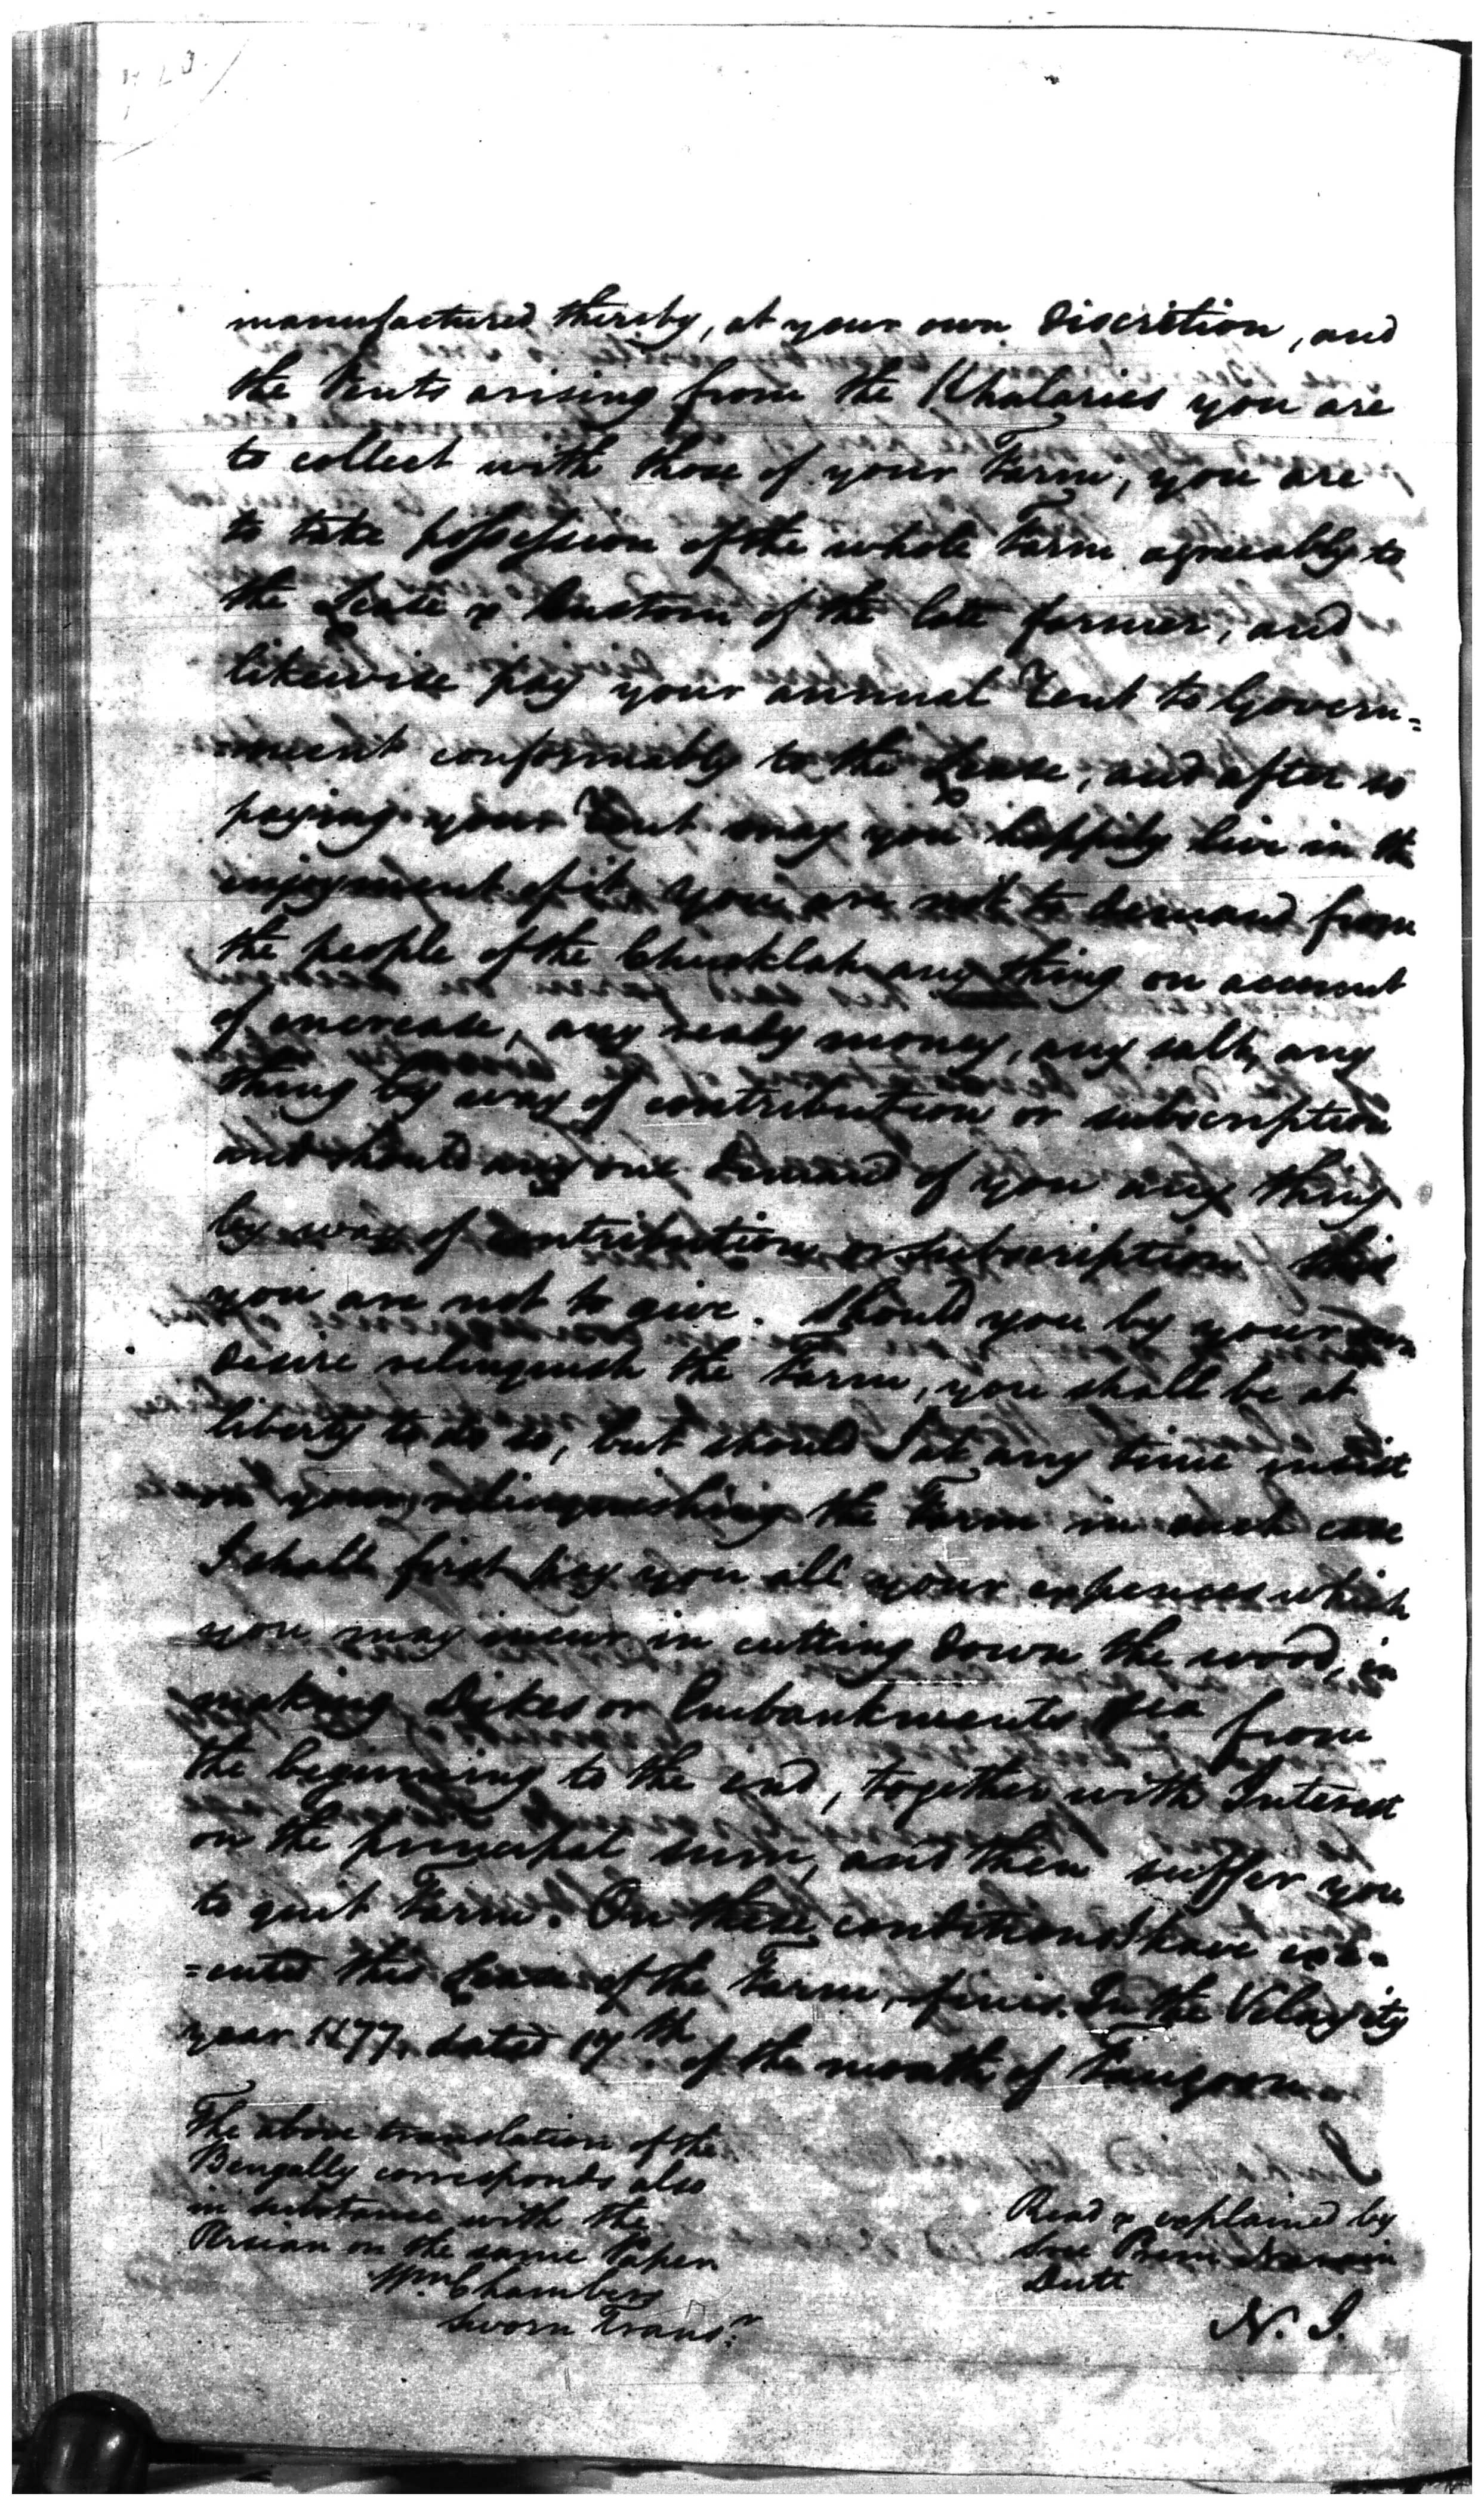 manufactured thereby, at your own discretion, and
the Rents arising from the Khalaries you are
to collect with those of your Farm, you are
to take possession of the whole Farm agreeably to
the Lease & Custom of the late farmer, and
likewise pay your annual Rent to Govern=
=ment conformably to the Lease, and after so
paying your Rent may you happily live in the
injoyment of it. You are not to demand from
the people of the Chucklah any thing on account
of increase, any ready money, any salt, any
thing by way of contribution or subscription
and should any one demand of you any thing
by way of contribution or subscription this
you are not to give. Should you by your own
desire relinquish the Farm, you shall be at
liberty to do so, but should I at any time insist
on your relinquishing the Farm in such case
I shall first pay you all your expences which
you may incur in cutting down the wood, in
making Dikes or Embankments &ca from
the beginning to the end, together with Interest
on the principal sum, and then suffer you
to quit Farm. On these conditions I have exe=
=cuted this Lease of the Farm, finis. In the Velayity
year 1177, dated 17th of the month of Faugoon.
The above translation of the
Bengally corresponds also
in substance with the
Persian on the same Paper
Wm Chambers
Sworn Transr.
Read & explained by
Prem Narain
Dutt
N. I.